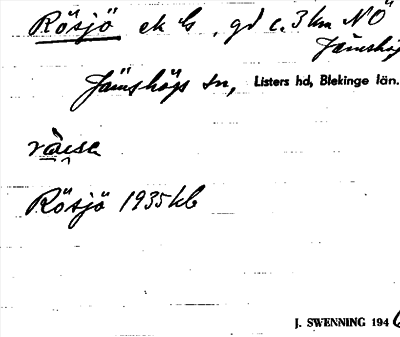 Rösjö ek ¼, gd c. 3 km NÖ
Jämshög
Jämshögs sn, Listers hd, Blekinge län.
Rösjö 1935 kb
J. SWENNING 194